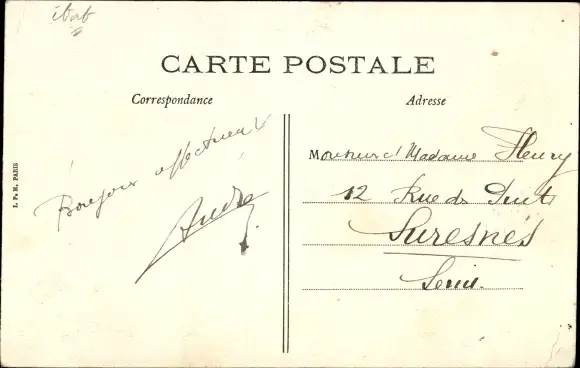 CARTE POSTALE
Correspondance
Adresse
L. P. R, PARIS
Bonjour affectueux
André
Monsieur & Madame Fleury
12 Rue de
Suresnes
Seine.